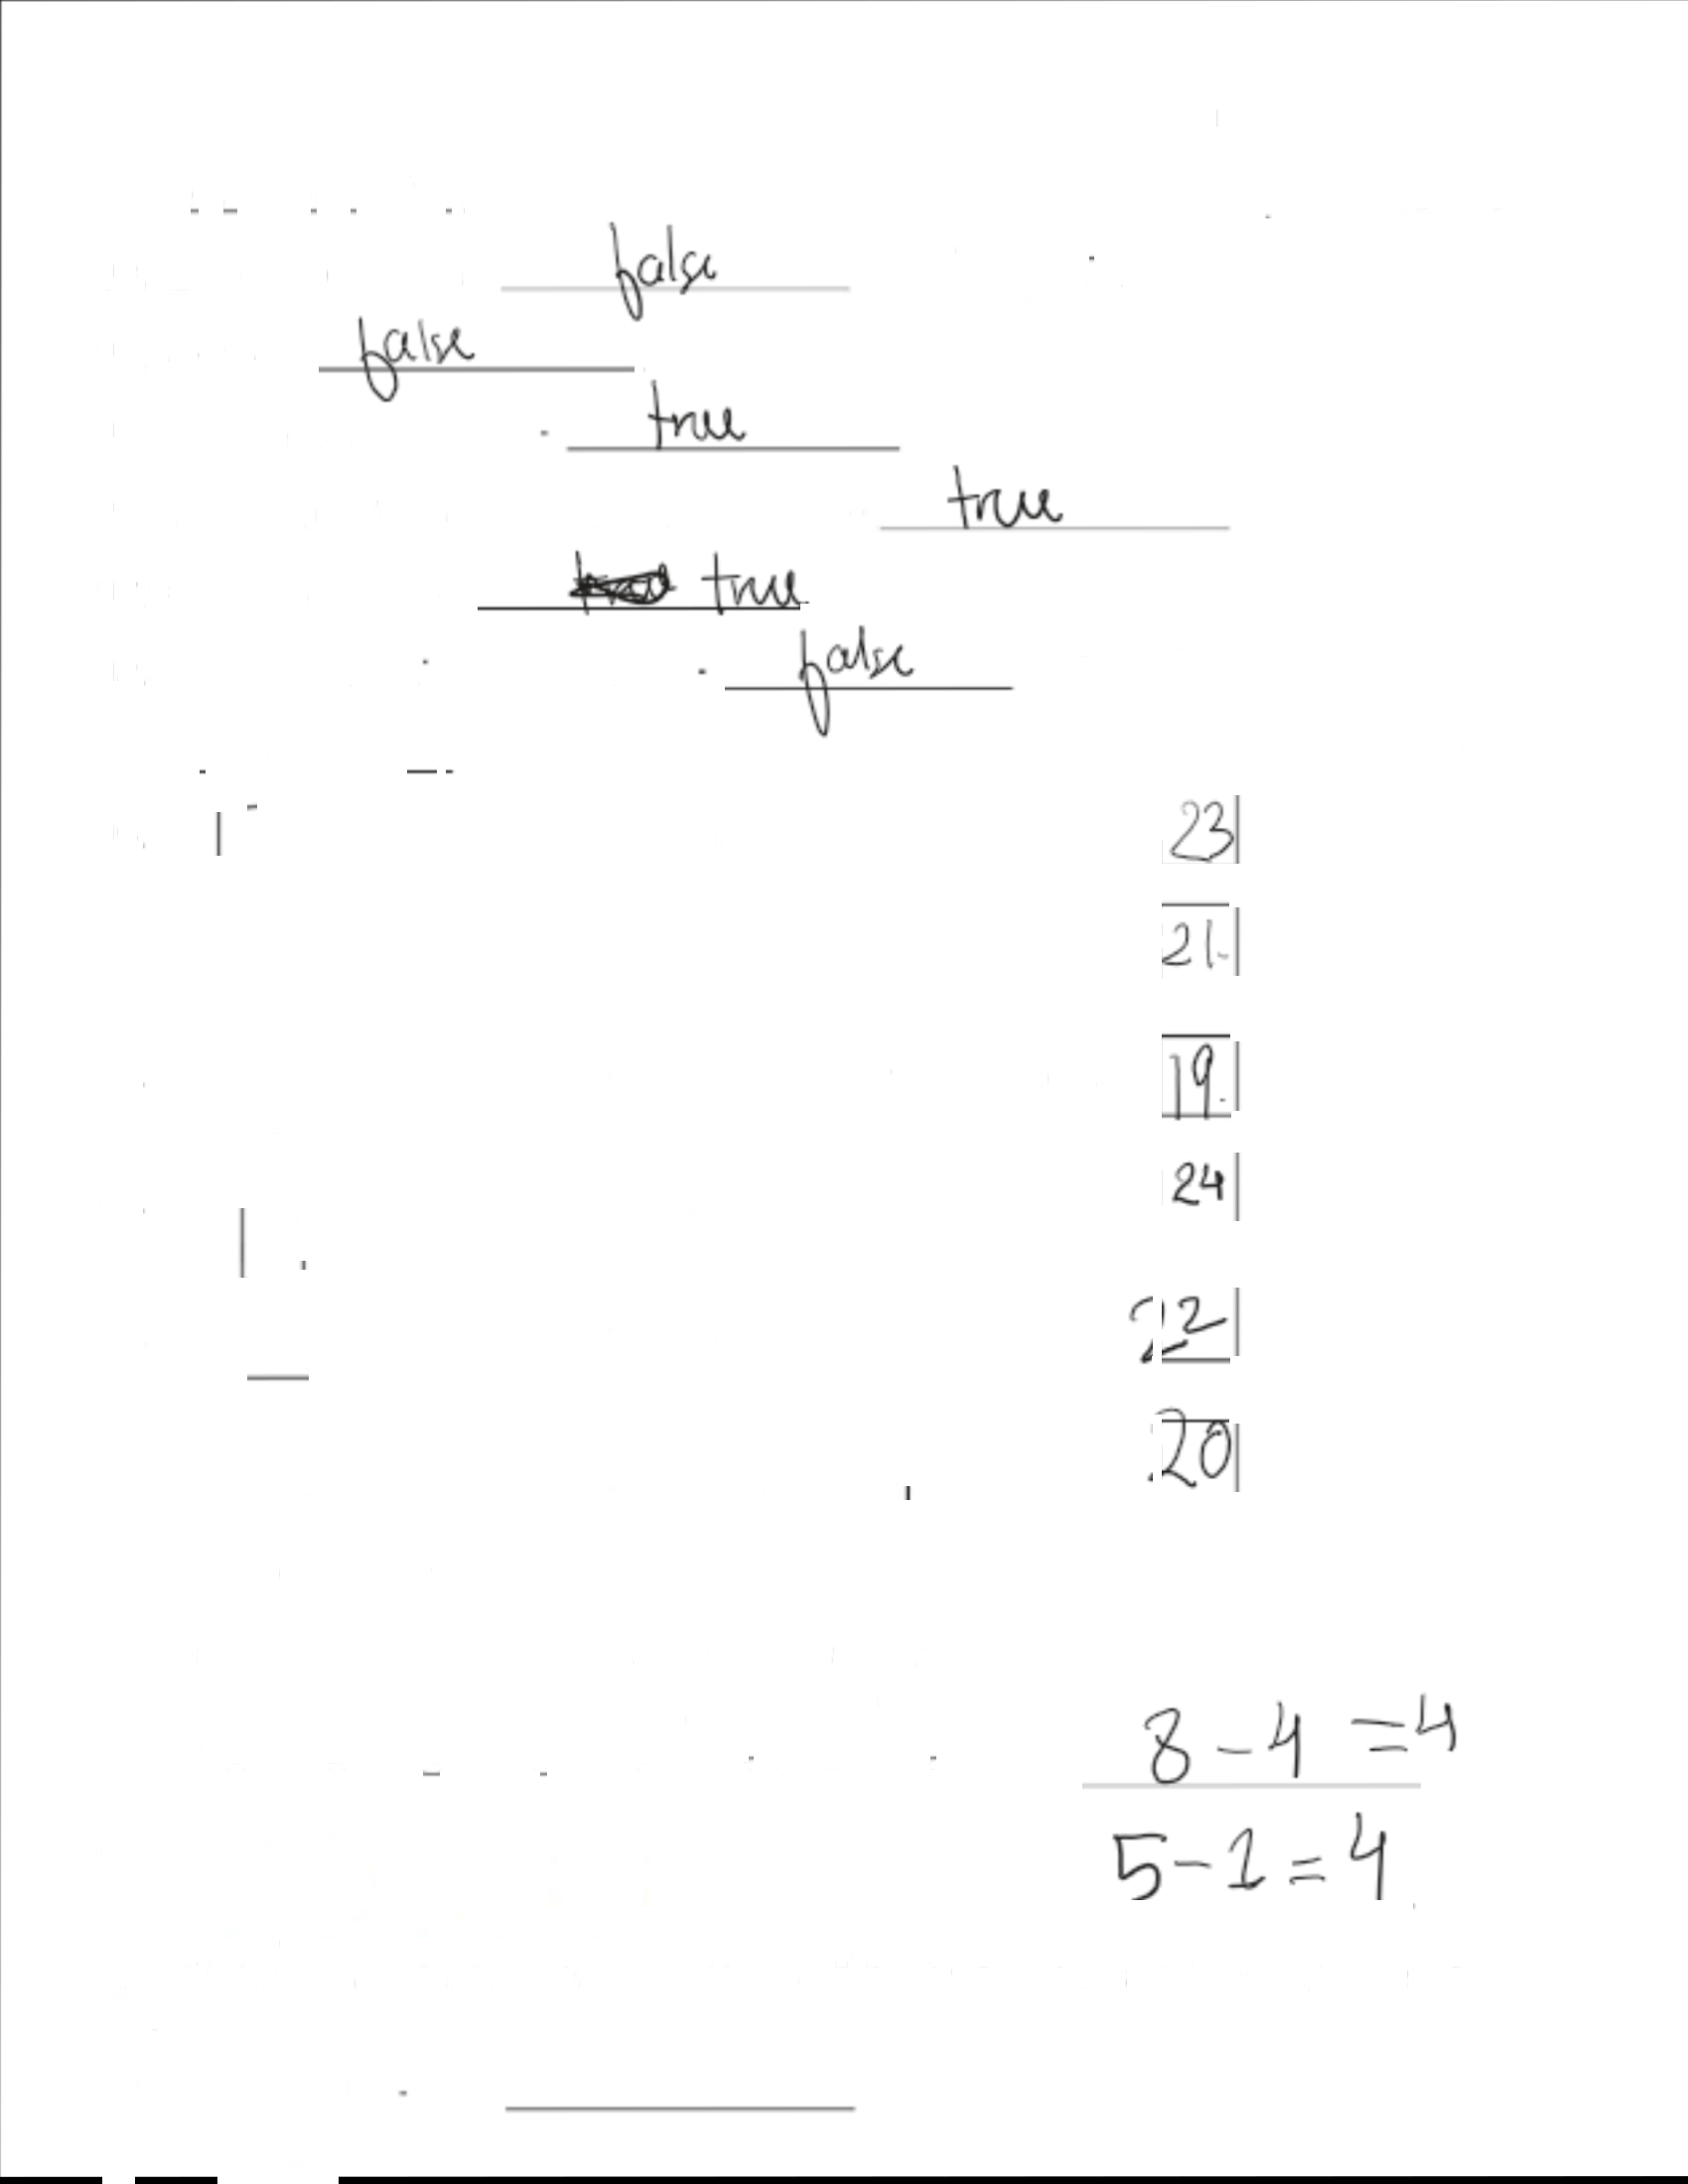 false
false
true
true
true
false
23
21.
19.
24
22
20
8-4 =4
5-1=4